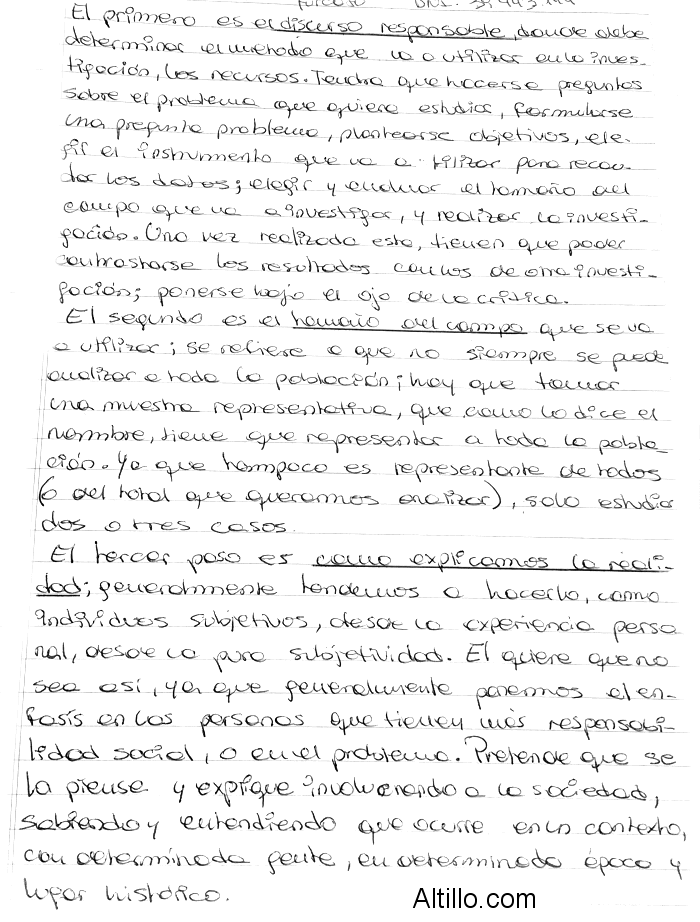 El primero es el discurso responsable, donde debe
determinar el metodo que va a utilizar en la inves-
tigación, los recursos. Tendra que hacerse preguntas
sobre el problema que quiere estudiar, formularse
una pregunta problema, plantearse objetivos, ele-
gir el instrumento que va a tilizar para recau-
dar los datos; elegir y evaluar el tamaño del
campo que va a investigar, y realizar la investi-
gación. Una vez realizada esta, tienen que poder
contrastarse los resultados con los de otra investi-
gación; ponerse bajo el ojo de la crítica.
El segundo es el tamaño del campo que se va
a utilizar; se refiere a que no siempre se puede
analizar a toda la población; hay que tomar
una muestra representativa, que como lo dice el
nombre, tiene que representar a toda la pobla-
ción. Ya que tampoco es representante de todos
(o del total que queramos analizar), solo estudiar
dos o tres casos.
El tercer paso es como explicamos la reali-
dad; generalmente tendemos a hacerlo, como
individuos subjetivos, desde la experiencia perso
nal, desde la pura subjetividad. El quiere que no
sea así, ya que generalmente ponemos el én-
fasis en las personas que tienen más responsabi-
lidad social, o en el problema. Pretende que se
la piense y explique involucrando a la sociedad,
sabiendo y entendiendo que ocurre en un contexto,
con determinada gente, en determinada época y
lugar histórico.
Altillo.com